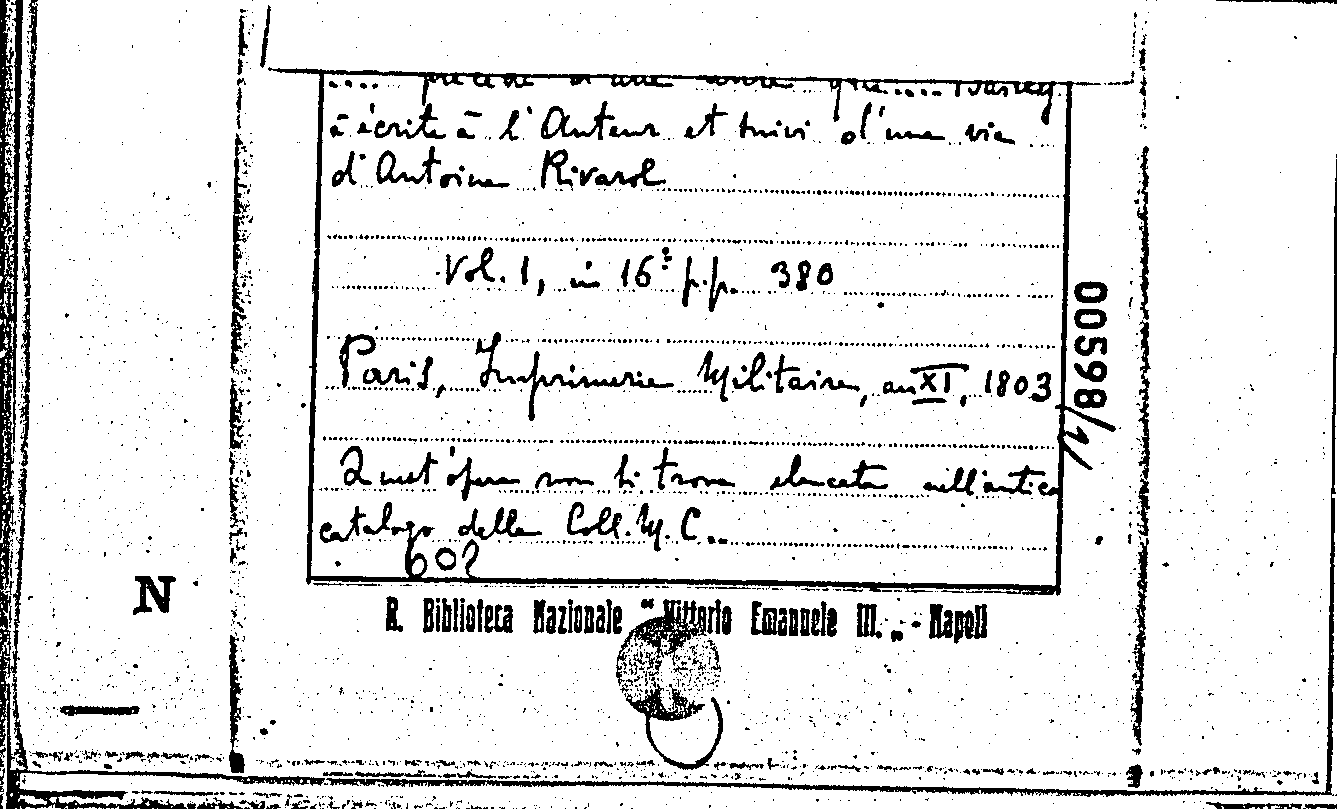 .... précédé d'une lettre que....
à écrite à l'Auteur et suivi d'une vie
d'Antoine Rivarol
Vol. 1, in 16° p.p. 380
Paris, Imprimerie Militaire, an XI, 1803
Quest'opera non si trova elencata nell'antico
catalogo della Coll. M. C..
602
00598/1
N
R. Biblioteca Nazionale "Vittorio Emanuele III." - Napoli